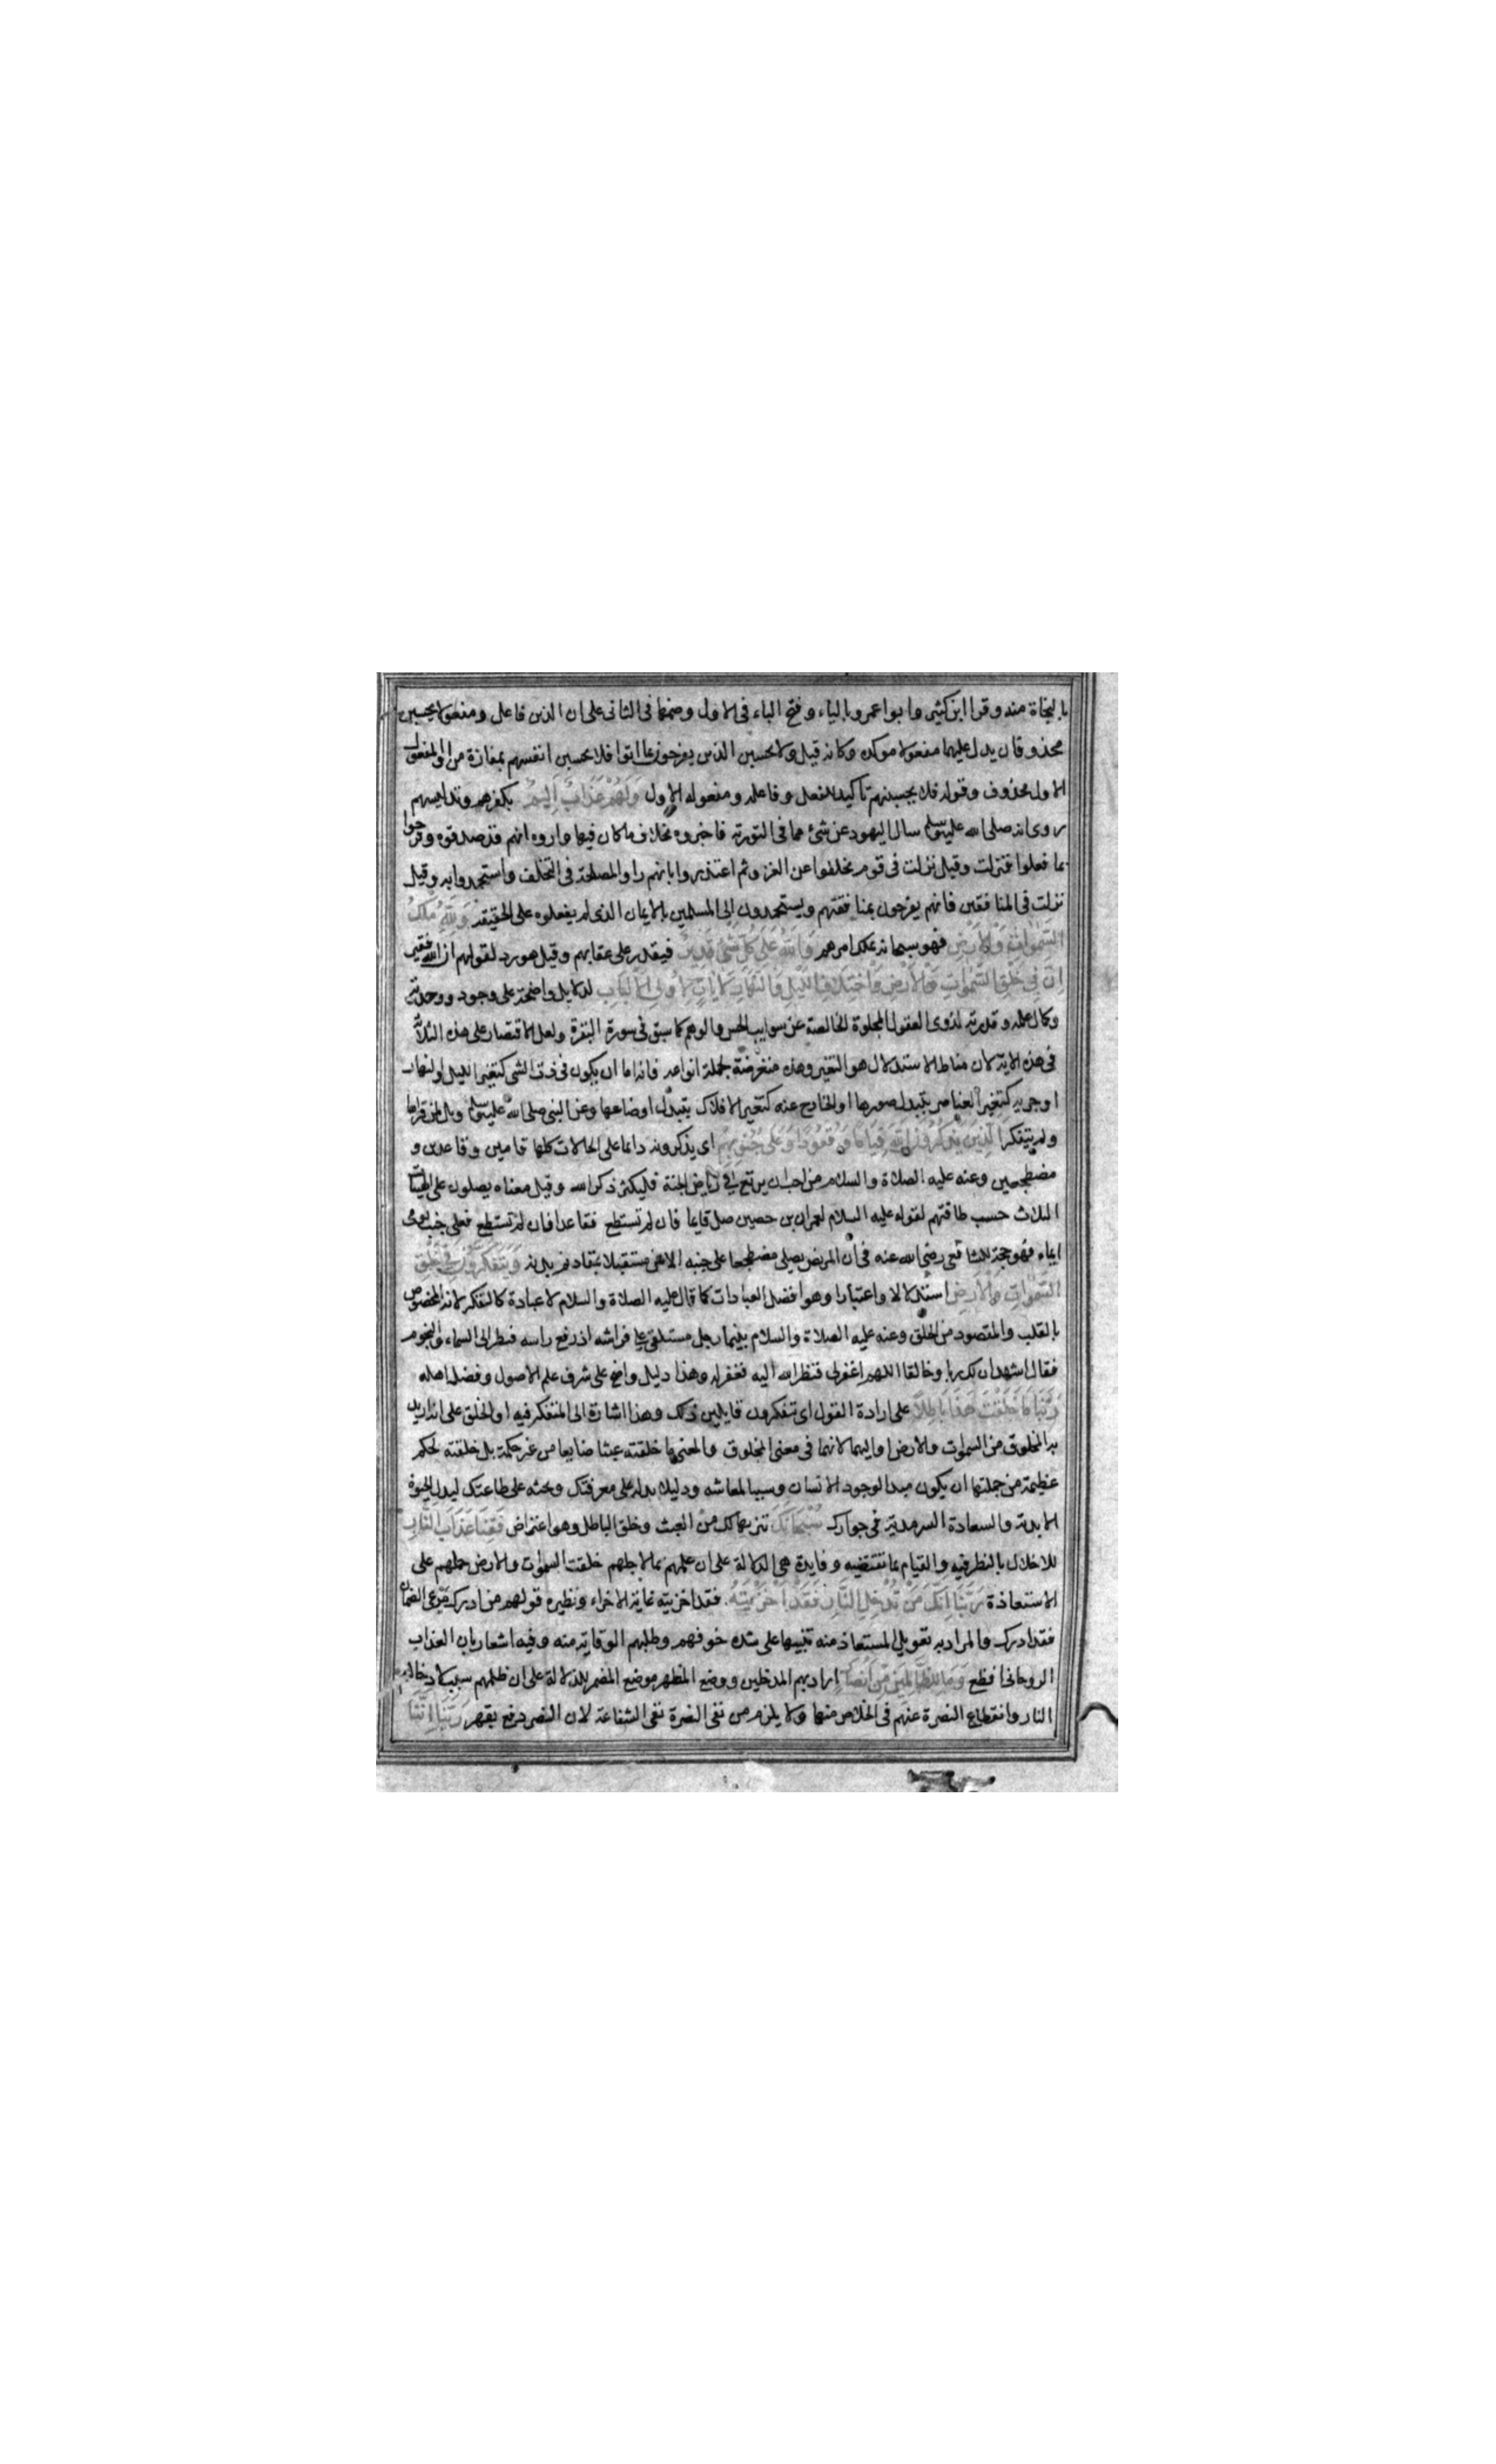 بالنجاة منه وقرا ابن كثير وابوا عمرو بالياء وفتح الباء فى الاول وضمها فى الثانى على ان الذين فاعل ومفعولا يحسبن
محذوفان يدل عليهما مفعولا موكده وكانه قيل ولا يحسبن الذين يفرحون بما اتوا فلا يحسبن انفسهم بمفازة من او المفعول
الاول محذوف وقوله فلا يحسبنهم تاكيد للفعل وفاعله ومفعوله الاول وَلَهُمْ عَذَابٌ اَلِيمٌ بكفرهم وتدليسهم
روى انه صلى الله عليه وسلم سال اليهود عن شئ مما فى التورية فاخبروه بخلاف ما كان فيها واروه انهم قد صدقوه وفرحوا
بما فعلوا فنزلت وقيل نزلت فى قوم تخلفوا عن الغزو ثم اعتذروا بانهم راوا المصلحة فى التخلف واستحمدوا به وقيل
نزلت فى المنافقين فانهم يفرحون بمنافقتهم ويستحمدون الى المسلمين بالايمان الذى لم يفعلوه على الحقيقة وَلِلّٰهِ مُلْكُ
السَّمٰوَاتِ وَالْاَرْضِ فهو سبحانه يملك امرهم وَاللّٰهُ عَلٰى كُلِّ شَىْءٍ قَدِيرٌ فيقدر على عقابهم وقيل هو رد لقولهم ان الله فقير
اِنَّ فِى خَلْقِ السَّمٰوَاتِ وَالْاَرْضِ وَاخْتِلَافِ اللَّيْلِ وَالنَّهَارِ لَاٰيَاتٍ لِاُولِى الْاَلْبَابِ لدلايل واضحة على وجوده ووحدته
وكمال علمه وقدرته لذوى العقول المجلوة الخالصة عن سوايب الحس والوهم كما سبق فى سورة البقرة ولعل الاقتصار على هذه الثلاثة
فى هذه الاية لان مناط الاستدلال هو التغير وهذه متعرضة لجملة انواعه فانه اما ان يكون فى ذت الشى كتغير الليل والنهار
او جزيه كتغير العناصر بتبدل صورها او الخارج عنه كتغير الافلاك بتبدل اوضاعها وعن النبى صلى الله عليه وسلم ويل لمن قراها
ولم يتفكر اَلَّذِينَ يَذْكُرُونَ اللّٰهَ قِيَامًا وَقُعُودًا وَعَلٰى جُنُوبِهِمْ اى يذكرونه دائما على الحالات كلها قامين وقاعدين و
مضطجعين وعنه عليه الصلاة والسلام من احب ان يرتع فى رياض الجنة فليكثر ذكر الله وقيل معناه يصلون على الهيئات
الثلاث حسب طاقتهم لقوله عليه السلام لعمران بن حصين صل قايما فان لم تستطع فقاعدا فان لم تستطع فعلى جنب يومى
ايماء فهو حجة للشافعى رضى الله عنه فى ان المريض يصلى مضطجعا على جنبه الايمن مستقبلا بمقاديم بدنه وَيَتَفَكَّرُونَ فِى خَلْقِ
السَّمٰوَاتِ وَالْاَرْضِ استدلالا واعتبارا وهو افضل العبادات كما قال عليه الصلاة والسلام لا عبادة كالتفكر لانه المخصوص
بالقلب والمقصود من الخلق وعنه عليه الصلاة والسلام بينما رجل مستلقى على فراشه اذ رفع راسه فنظر الى السماء والنجوم
فقال اشهد ان لك ربا وخالقا اللهم اغفر لى فنظر الله اليه فغفر له وهذا دليل واضح على شرف علم الاصول وفضل اهله
رَبَّنَا مَا خَلَقْتَ هٰذَا بَاطِلًا على ارادة القول اى تتفكرون قايلين ذلك وهذا اشارة الى المتفكر فيه او الخلق على انه اريد
به المخلوق من السموات والارض او اليهما لانهما فى معنى المخلوق والمعنى ما خلقته عبثا ضايعا من غير حكمة بل خلقته لحكم
عظيمة من جملتها ان يكون مبدا لوجود الانسان وسببا لمعاشه ودليلا يدله على معرفتك ويحثه على طاعتك لينال الحيوة
الابدية والسعادة السرمدية فى جوارك سُبْحَانَكَ تنزيها لك من العبث وخلق الباطل وهو اعتراض فَقِنَا عَذَابَ النَّارِ
للاخلال بالنظر فيه والقيام بما تقتضيه وفايدة هى الدلالة على ان علمهم بما لاجلهم خلقت السموات والارض حملهم على
الاستعاذة رَبَّنَا اِنَّكَ مَنْ تُدْخِلِ النَّارَ فَقَدْ اَخْزَيْتَهُ فقد اخزيته غاية الاخزاء ونظيره قولهم من ادرك مرعى الضمان
فقد ادرك والمراد به تهويل المستعاذ منه تنبيها على شدة خوفهم وطلبهم الوقاية منه وفيه اشعار بان العذاب
الروحانى افظع وَمَا لِلظَّالِمِينَ مِنْ اَنْصَارٍ اراد بهم المدخلين ووضع المظهر موضع المضمر للدلالة على ان ظلمهم سبب لادخالهم
النار وانقطاع النصرة عنهم فى الخلاص منها ولا يلزم من نفى النصرة نفى الشفاعة لان النصر دفع بقهر رَبَّنَا اِنَّنَا